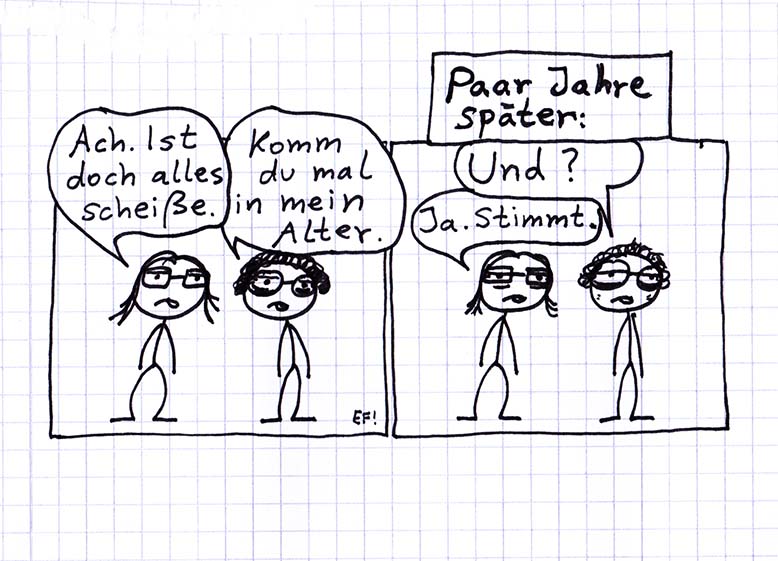 Ach. Ist
doch alles
scheiße.
Komm
du mal
in mein
Alter.
EF!
Paar Jahre
später:
Und ?
Ja. Stimmt.